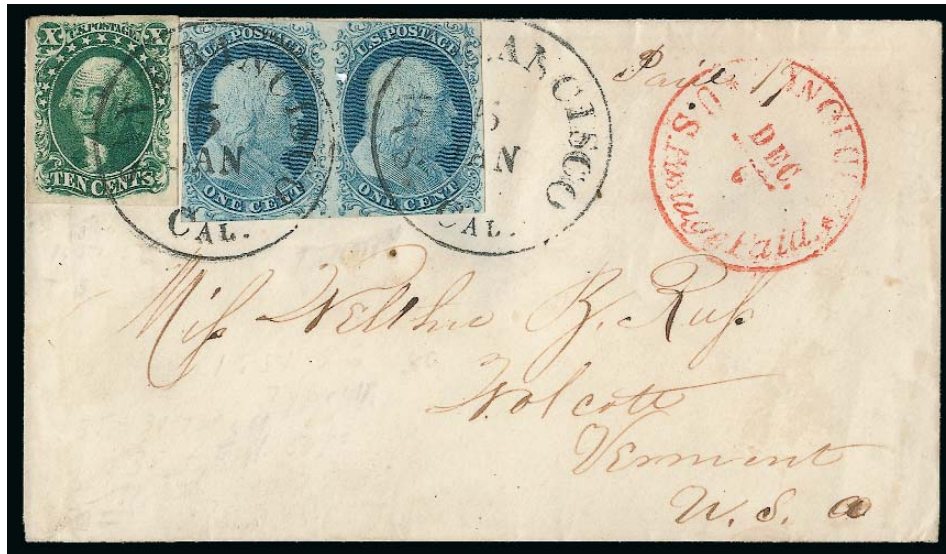 X U.S. POSTAGE. X
TEN CENTS.
U.S. POSTAGE
ONE CENT
U.S. POSTAGE
ONE CENT
SAN FRANCISCO
5
JAN
CAL.
SAN FRANCISCO
5
JAN
CAL.
Paid 17
HONOLULU
DEC.
U.S. Postage Paid.
Miss
Wolcott
Vermont
U. S. a